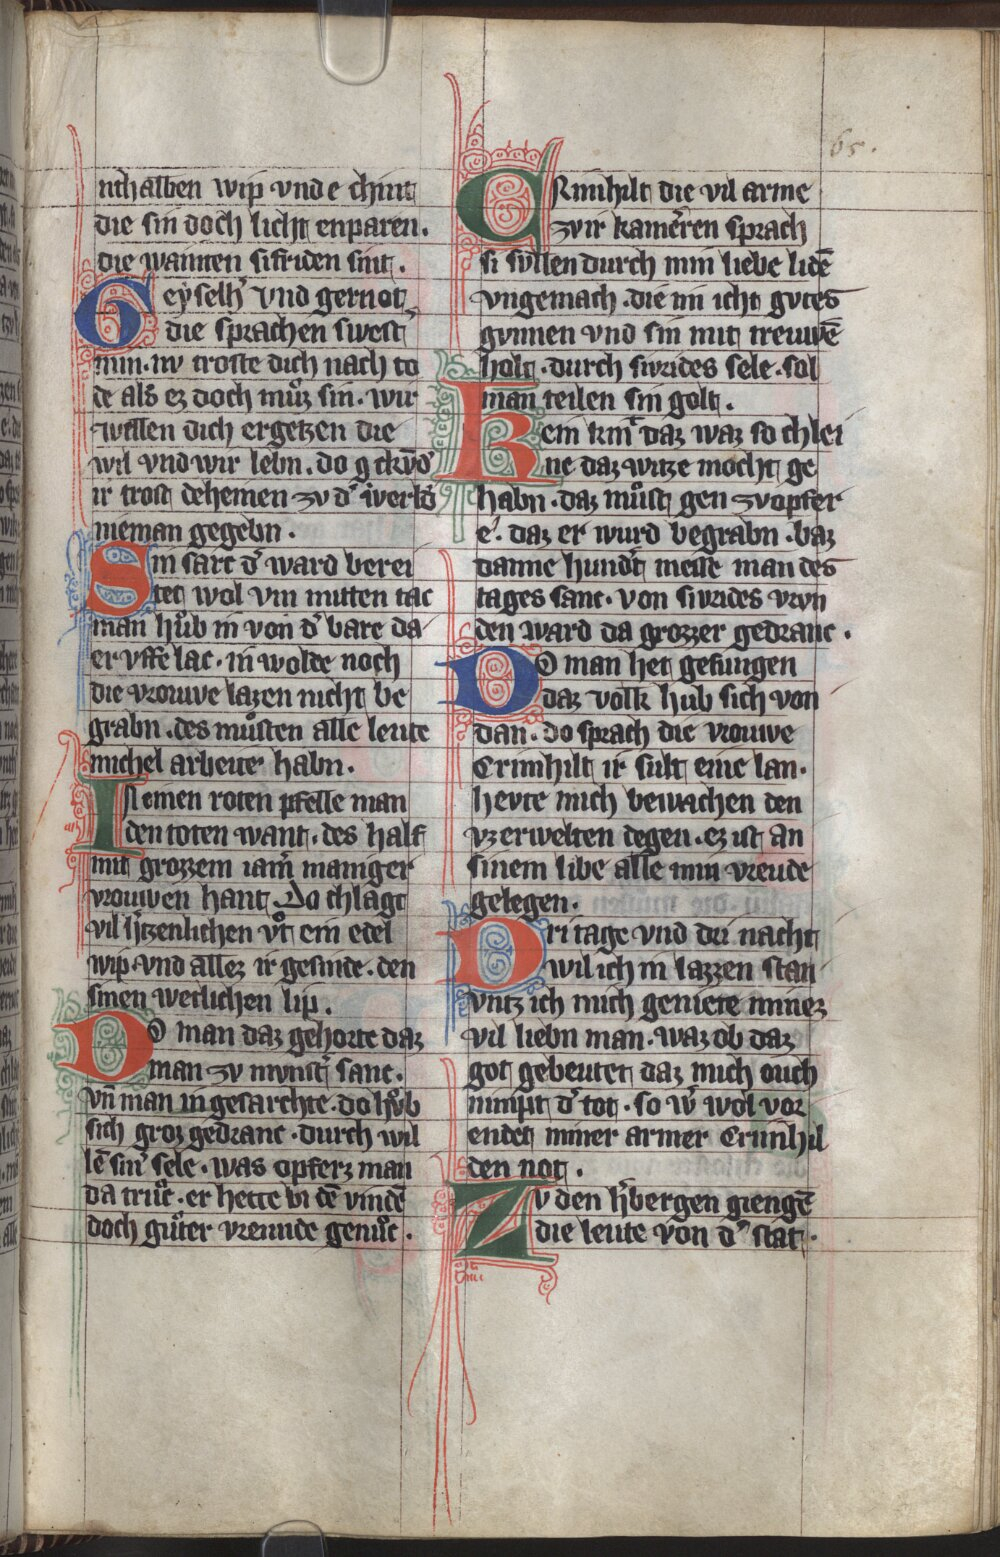 65.
nithalben wip vnde chint
die sin doch licht enparen.
die wainten sifriden sint.
Geyselh᷑ vnd gernot
die sprachen swest᷑
min. nv troste dich nach to
de als ez doch mu᷑z sin. wir
wellen dich ergetzen die
wil vnd wir lebn. do
ir trost deheinen zv d᷑ werld᷑
nieman gegebn.
Sin sarc d᷑ ward berei
tet wol vm mitten tac
man huͦb in von d᷑ bare da
er vffe lac. in wolde noch
die vrouwe lazen nicht be
grabn. des muͦsten alle leute
michel arbeite habn.
In einen roten pfelle man
den toten want. des half
mit grozzem iam᷑ maniger
vrouwen hant. Do chlagt
vil h᷑tzenlichen vͦt ein edel
wip vnd allez ir gesinde. den
sinen wetlichen lip.
Do man daz gehorte daz
man zv mvnst᷑ sanc.
vn̄ man in gesarchte. do hvͦb
sich groz gedranc. durch wil
lē sin᷑ sele. was opferz man
da truͦc. er hette bi dē vindē
doch guͦter vreunde genuͦc.
Crimhilt die vil arme
zvir kamerēren sprach
si svllen durch min liebe lidē
vngemach. die im icht gvtes
gunnen vnd sin mit treuwē
holt. durch sivrides sele. sol
man teilen sin golt.
Kein kint daz waz so chlei
ne daz witze mocht ge
habn. daz muͦst gen zv opfer
e᷑. daz er wurd begrabn. baz
danne hund᷑t messe man des
tages sanc. von sivrides vrvn
den ward da grozzer gedranc.
Do man het gesungen
daz volk hub sich von
dan. do sprach die vrouwe
Crimhilt ir sult eine lan.
hevte mich bewachen den
vz erwelten degen. ez ist an
sinem libe alle min vreude
gelegen.
Dri tage vnd dri nacht
wil ich in lazzen stan
vntz ich mich geniete minez
vil liebn man. waz ob daz
got gebeutet daz mich ouch
nimpt d᷑ tot. so w᷑ wol vor
endet miner armer Crimhil
den not.
Zv den h᷑bergen giengē
die leute von d᷑ stat.